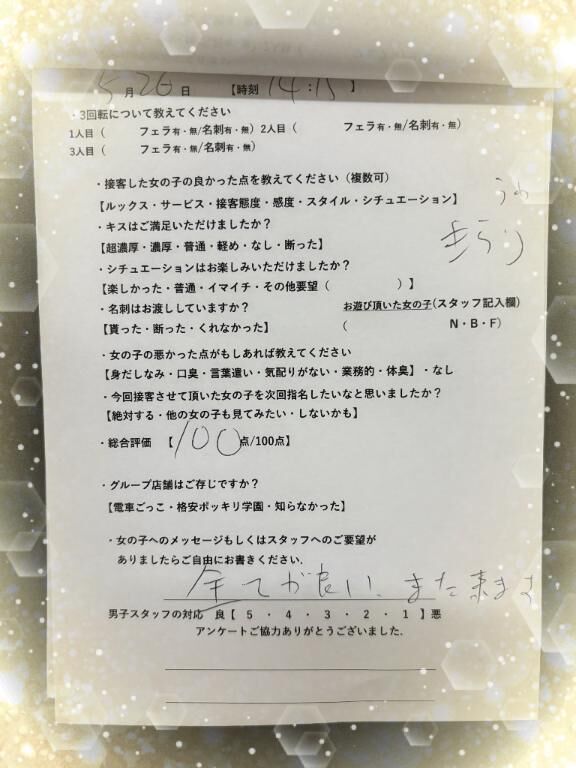 5月26日 【時刻 14:15 】
・3回転について教えてください
1人目( フェラ有・無/名刺有・無) 2人目( フェラ有・無/名刺有・無)
3人目( フェラ有・無/名刺有・無)
・接客した女の子の良かった点を教えてください(複数可)
【ルックス・サービス・接客態度・感度・スタイル・シチュエーション】
・キスはご満足いただけましたか?
【超濃厚・濃厚・普通・軽め・なし・断った】
・シチュエーションはお楽しみいただけましたか?
【楽しかった・普通・イマイチ・その他要望( )】
・名刺はお渡ししていますか?
お遊び頂いた女の子(スタッフ記入欄)
【貰った・断った・くれなかった】
( N・B・F)
・女の子の悪かった点がもしあれば教えてください
【身だしなみ・口臭・言葉遣い・気配りがない・業務的・体臭】・なし
・今回接客させて頂いた女の子を次回指名したいなと思いましたか?
【絶対する・他の女の子も見てみたい・しないかも】
・総合評価 【100点/100点】
・グループ店舗はご存じですか?
【電車ごっこ・格安ポッキリ学園・知らなかった】
・女の子へのメッセージもしくはスタッフへのご要望が
ありましたらご自由にお書きください.
全てが良い、また来ます
男子スタッフの対応 良【 5 ・ 4 ・ 3 ・ 2 ・ 1 】悪
アンケートご協力ありがとうございました.